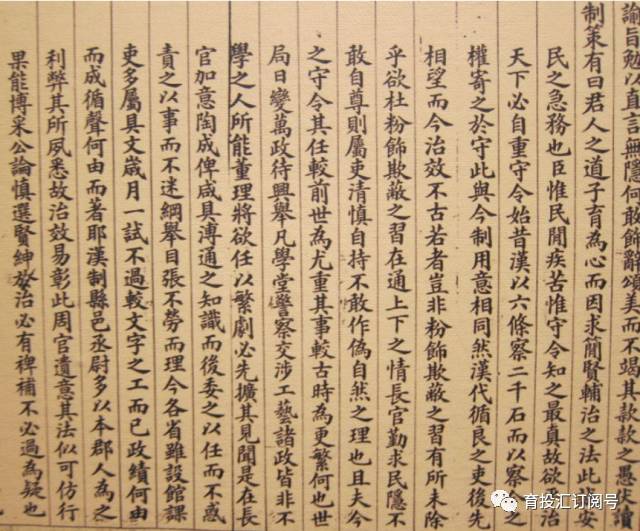 諭旨勉以直言無隱何敢飾辭頌美而不竭其款款之愚伏讀
制策有曰君人之道子育為心而因求簡賢輔治之法此安
民之急務也臣惟民間疾苦惟守令知之最真故欲治
天下必自重守令始昔漢以六條察二千石而以察令之
權寄之於守此與今制用意相同然漢代循良之吏後先
相望而今治效不古若者豈非粉飾欺蔽之習有所未除
乎欲杜粉飾欺蔽之習在通上下之情長官勤求民隱不
敢自尊則屬吏清慎自持不敢作偽自然之理也且夫今
之守令其任較前世為尤重其事較古時為更繁何也世
局日變萬政待興舉凡學堂警察交涉工藝諸政皆非不
學之人所能董理將欲任以繁劇必先擴其見聞是在長
官加意陶成俾咸具溥通之知識而後委之以任而不惑
責之以事而不迷綱舉目張不勞而理今各省雖設館課
吏多屬具文歲月一試不過較文字之工而已政績何由
而成循聲何由而著耶漢制縣邑丞尉多以本郡人為之
利弊其所夙悉故治效易彰此周官遺意其法似可仿行
果能博采公論慎選賢紳於治必有裨補不必過為疑也
育投汇订阅号